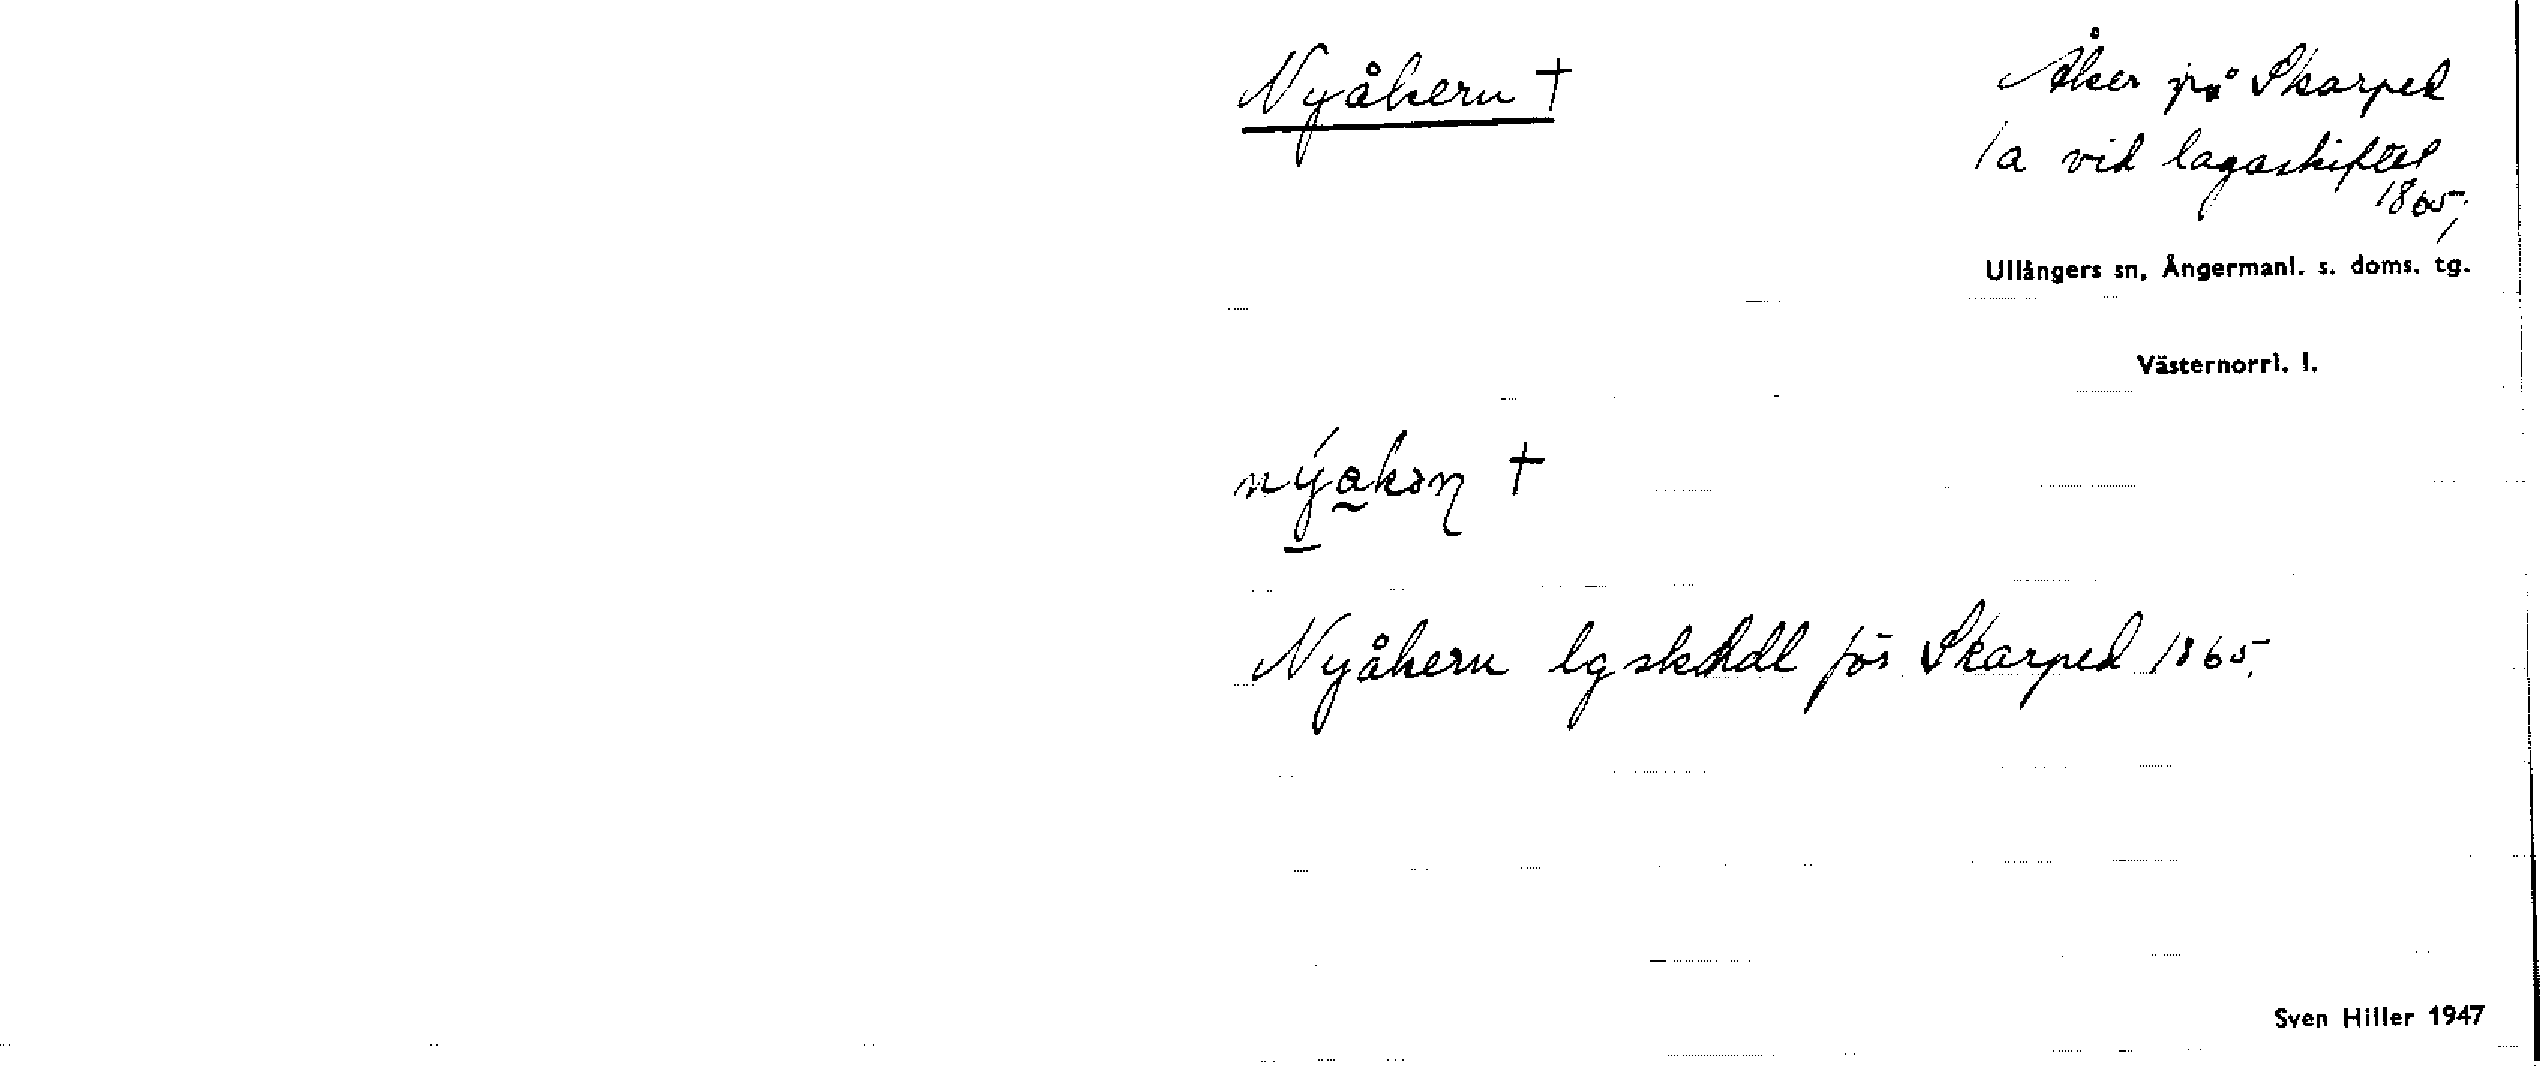 Nyåkern †
Åker på Skarped
1a vid lagaskiftet
1865;
Ullångers sn, Ångermanl. s. doms. tg.
Västernorrl. l.
nýakən †
Nyåkern lgskhdl för Skarped 1865.
Sven Hiller 1947